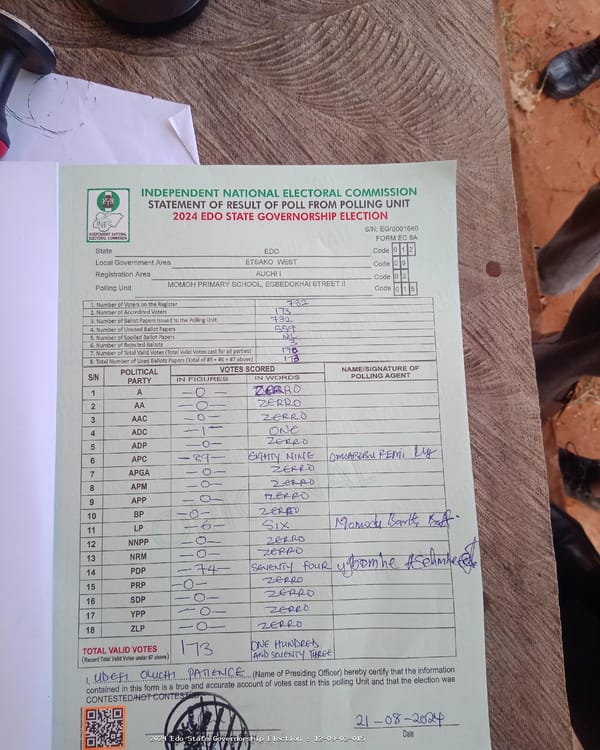 INDEPENDENT NATIONAL ELECTORAL COMMISSION
STATEMENT OF RESULT OF POLL FROM POLLING UNIT
2024 EDO STATE GOVERNORSHIP ELECTION
INDEPENDENT NATIONAL ELECTORAL COMMISSION
S/N, EG/0001640
FORM EC 8A
State EDO Code 0 1 2
Local Government Area ETSAKO WEST Code 0 9
Registration Area AUCHI I Code 0 2
Polling Unit MOMOH PRIMARY SCHOOL, EGBEDOKHAI STREET II Code 0 1 5
1. Number of Voters on the Register 732
2. Number of Accredited Voters 173
3. Number of Ballot Papers Issued to the Polling Unit 732
4. Number of Unused Ballot Papers 559
5. Number of Spoiled Ballot Papers
6. Number of Rejected Ballots
7. Number of Total Valid Votes (Total Valid Votes cast for all parties)
8. Total Number of Used Ballots Papers (Total of #5 + #6 + #7 above) 173
S/N POLITICAL PARTY VOTES SCORED NAME/SIGNATURE OF POLLING AGENT
IN FIGURES IN WORDS
1 A -0- ZERRO
2 AA -0- ZERRO
3 AAC -0- ZERRO
4 ADC -1- ONE
5 ADP -0- ZERRO
6 APC -89- EIGHTY NINE REMI
7 APGA -0- ZERRO
8 APM -0- ZERRO
9 APP -0- ZERRO
10 BP -0- ZERRO
11 LP -6- SIX Momodu
12 NNPP -0- ZERRO
13 NRM -0- ZERRO
14 PDP -74- SEVENTY FOUR
15 PRP -0- ZERRO
16 SDP -0- ZERRO
17 YPP -0- ZERRO
18 ZLP -0- ZERRO
TOTAL VALID VOTES 173 ONE HUNDRED
(Record Total Valid Votes under #7 above) AND SEVENTY THREE
I, UDEFI OLUCHI PATIENCE (Name of Presiding Officer) hereby certify that the information
contained in this form is a true and accurate account of votes cast in this polling Unit and that the election was
CONTESTED/NOT CONTESTED
21-08-2024
Date
2024 Edo State Governorship Election - 12-09-02-015